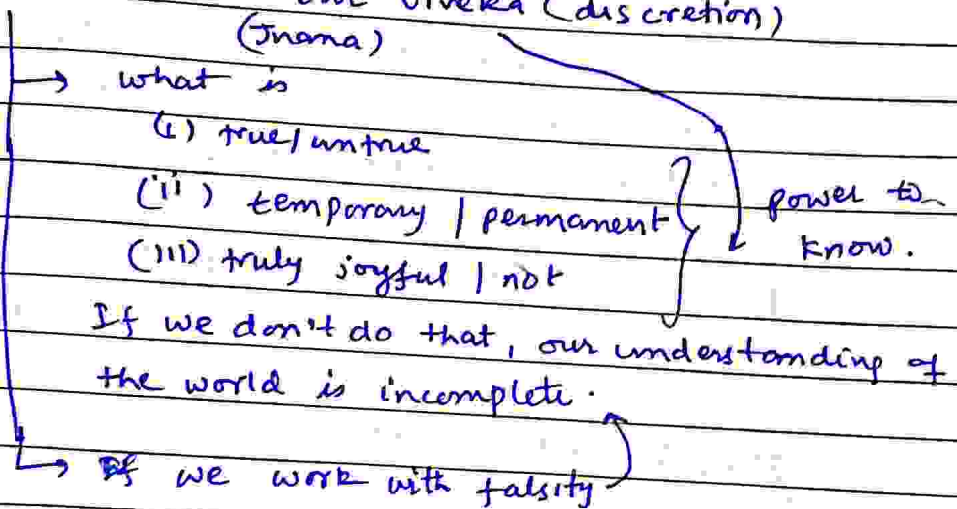 viveka (discretion)
(Jnana)
→ what is
(i) true/untrue
(ii) temporary / permanent
(III) truly joyful / not
power to know.
If we don't do that, our understanding of
the world is incomplete.
→ If we work with falsity